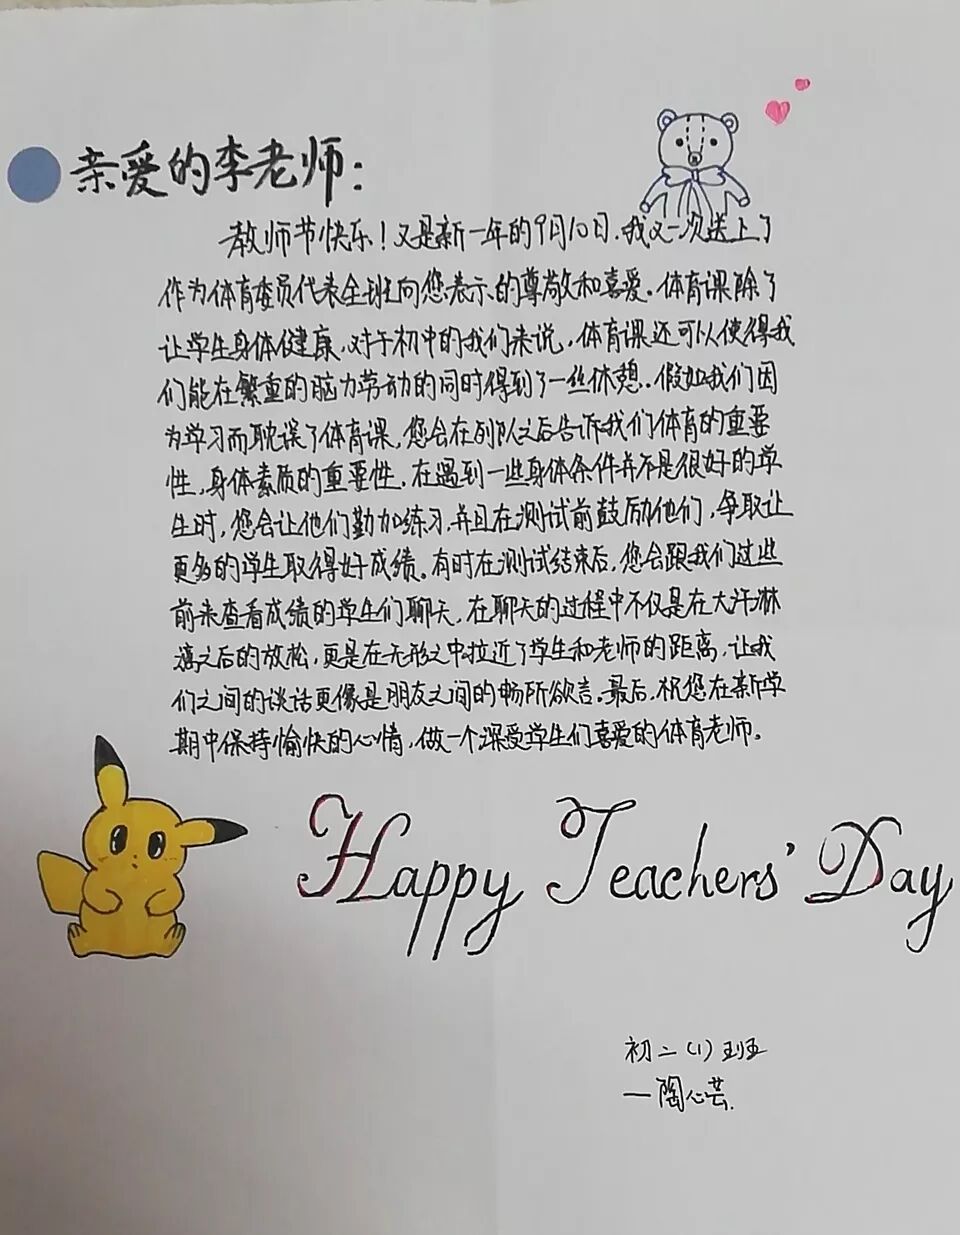 亲爱的李老师：
教师节快乐！又是新一年的9月10日，我又一次送上了
作为体育委员代表全班向您表示的尊敬和喜爱。体育课除了
让学生身体健康，对于初中的我们来说，体育课还可以使得我
们能在繁重的脑力劳动的同时得到了一些休憩。假如我们因
为学习而耽误了体育课，您会在列队之后告诉我们体育的重要
性，身体素质的重要性。在遇到一些身体条件并不是很好的学
生时，您会让他们勤加练习，并且在测试前鼓励他们，争取让
更多的学生取得好成绩。有时在测试结束后，您会跟我们这些
前来查看成绩的学生们聊天，在聊天的过程中不仅是在大汗淋
漓之后的放松，更是在无形之中拉近了学生和老师的距离，让我
们之间的谈话更像是朋友之间的畅所欲言。最后，祝您在新学
期中保持愉快的心情，做一个深受学生们喜爱的体育老师。
Happy Teachers' Day
初二（1）班
—陶心芸.